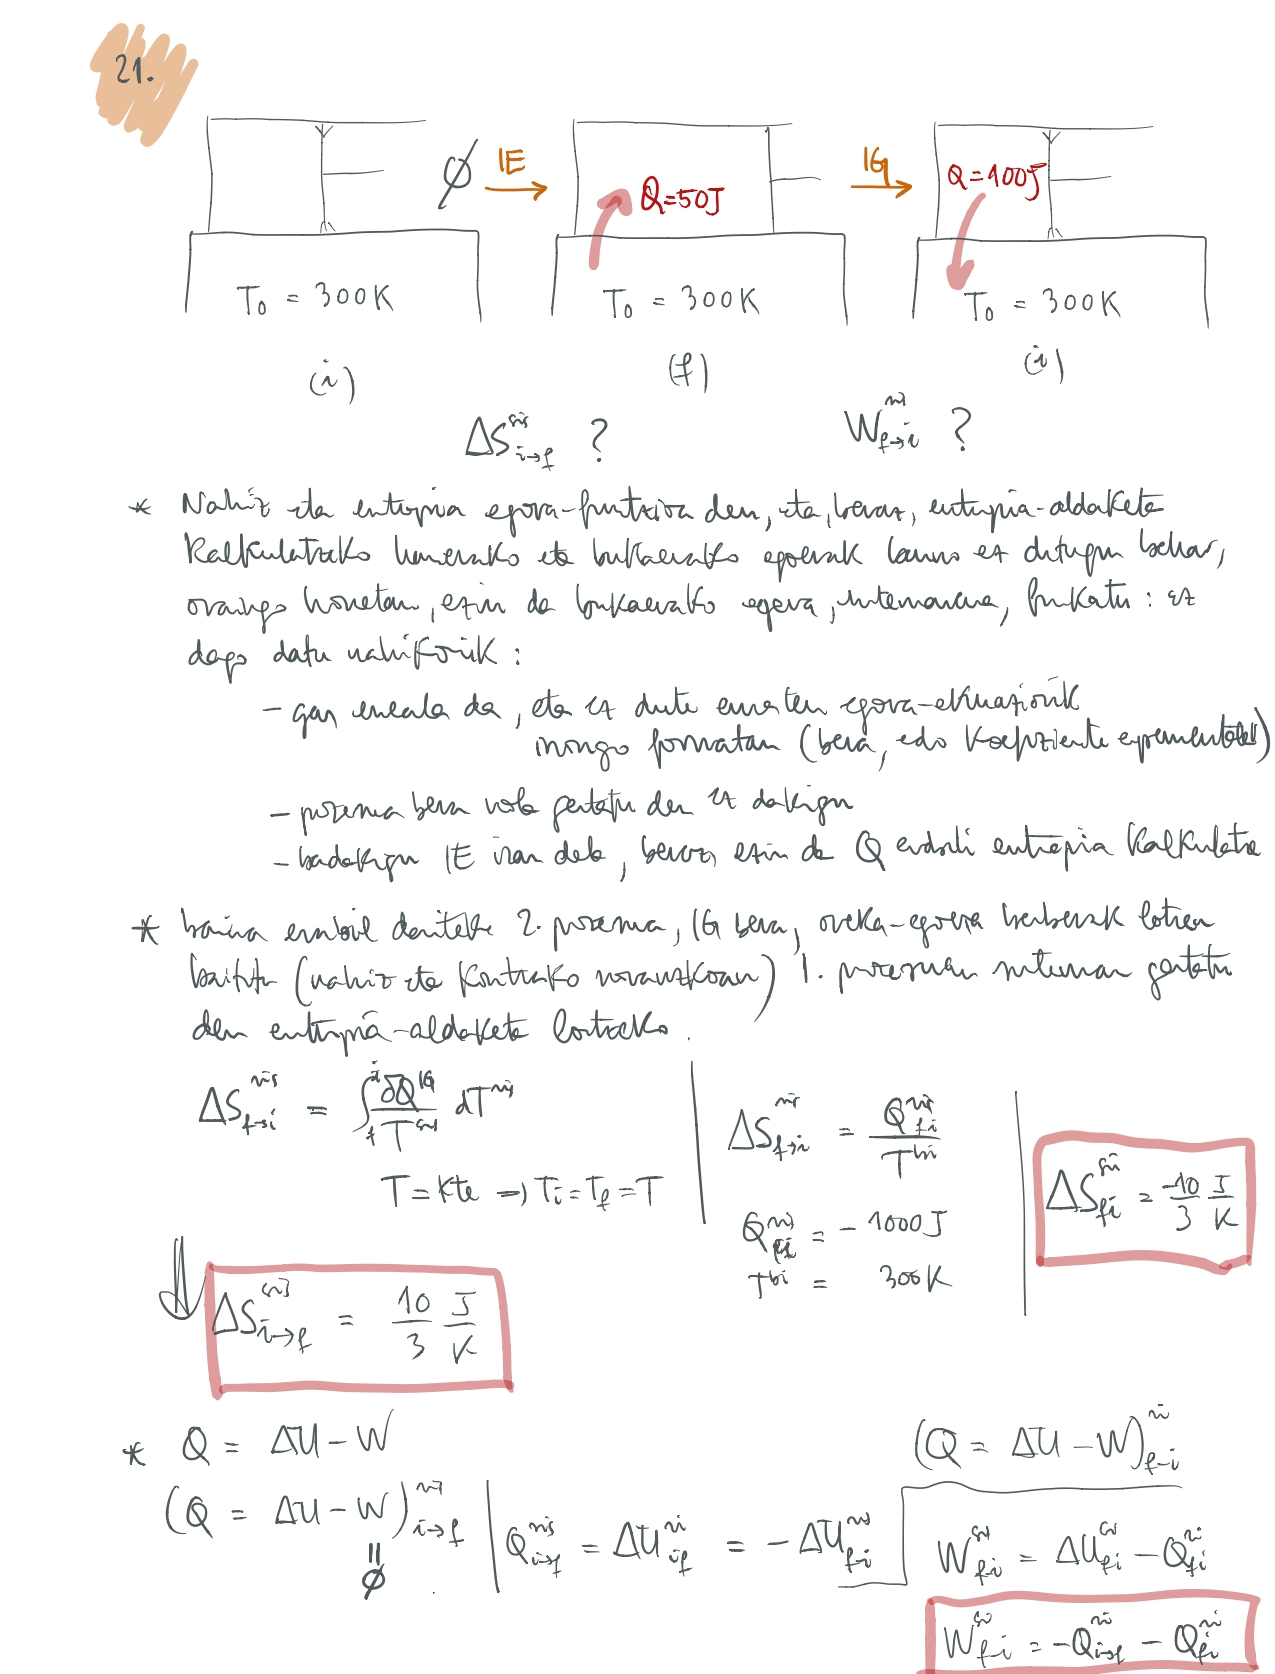 21.
∅ IE → IG →
Q=50J
Q=100J
T₀ = 300K T₀ = 300K T₀ = 300K
(i) (f) (i)
ΔS^{sis}_{i→f} ? W^{sis}_{f→i} ?
* Nahiz eta entropia egoera-funtzioa den, eta, beraz, entropia-aldaketa
kalkulatzeko hasierako eta bukaerako egoerak baino ez ditugun behar,
oraingo honetan, ezin da bukaerako egoera, finkatu: ez
dago datu nahikorik:
- gas erreala da, eta ez dute ematen egoera-ekuaziorik
inongo formatan (bera, edo koefiziente esperimentalak)
- prozesua bera nola gertatu den ez dakigu
- badakigu IE izan dela, beraz, ezin da Q erabili entropia kalkulatzeko
* baina erabil daiteke 2. prozesua, IG bera, oreka-egoera berberak lotzen
baititu (nahiz eta kontrako noranzkoan) 1. prozesuan sisteman gertatu
den entropia-aldaketa lortzeko.
ΔS^{sis}_{f→i} = ∫_f^i δQ^{IG}/T^{sis} dT^{sis}
T = kte ⇒ T_i = T_f = T
ΔS^{sis}_{f→i} = Q^{sis}_{fi}/T^{bi}
Q^{sis}_{fi} = -1000J
T^{bi} = 300K
ΔS^{sis}_{fi} = -10/3 J/K
⇓ ΔS^{sis}_{i→f} = 10/3 J/K
* Q = ΔU - W
(Q = ΔU - W)^{sis}_{i→f}
= ∅
Q^{sis}_{i→f} = ΔU^{sis}_{if} = -ΔU^{sis}_{f-i}
(Q = ΔU - W)^{sis}_{f-i}
W^{sis}_{f-i} = ΔU^{sis}_{fi} - Q^{sis}_{fi}
W^{sis}_{f-i} = -Q^{sis}_{i→f} - Q^{sis}_{fi}